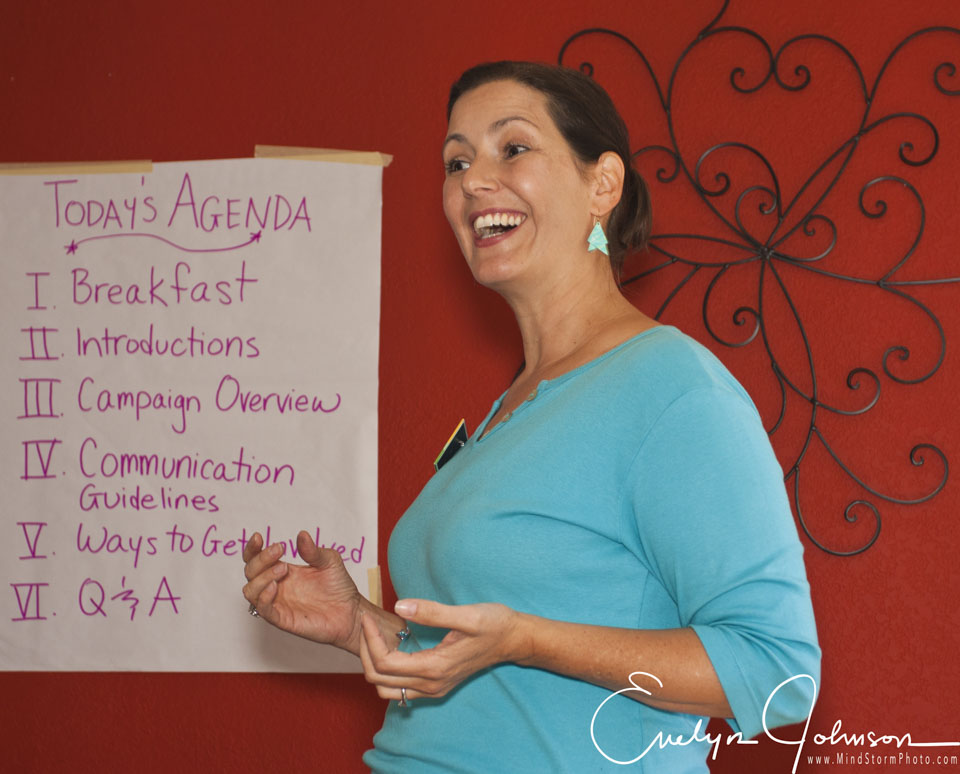 Today's Agenda
I. Breakfast
II. Introductions
III. Campaign Overview
IV. Communication
Guidelines
V. Ways to Get Involved
VI. Q & A
Evelyn Johnson
www.MindStormPhoto.com